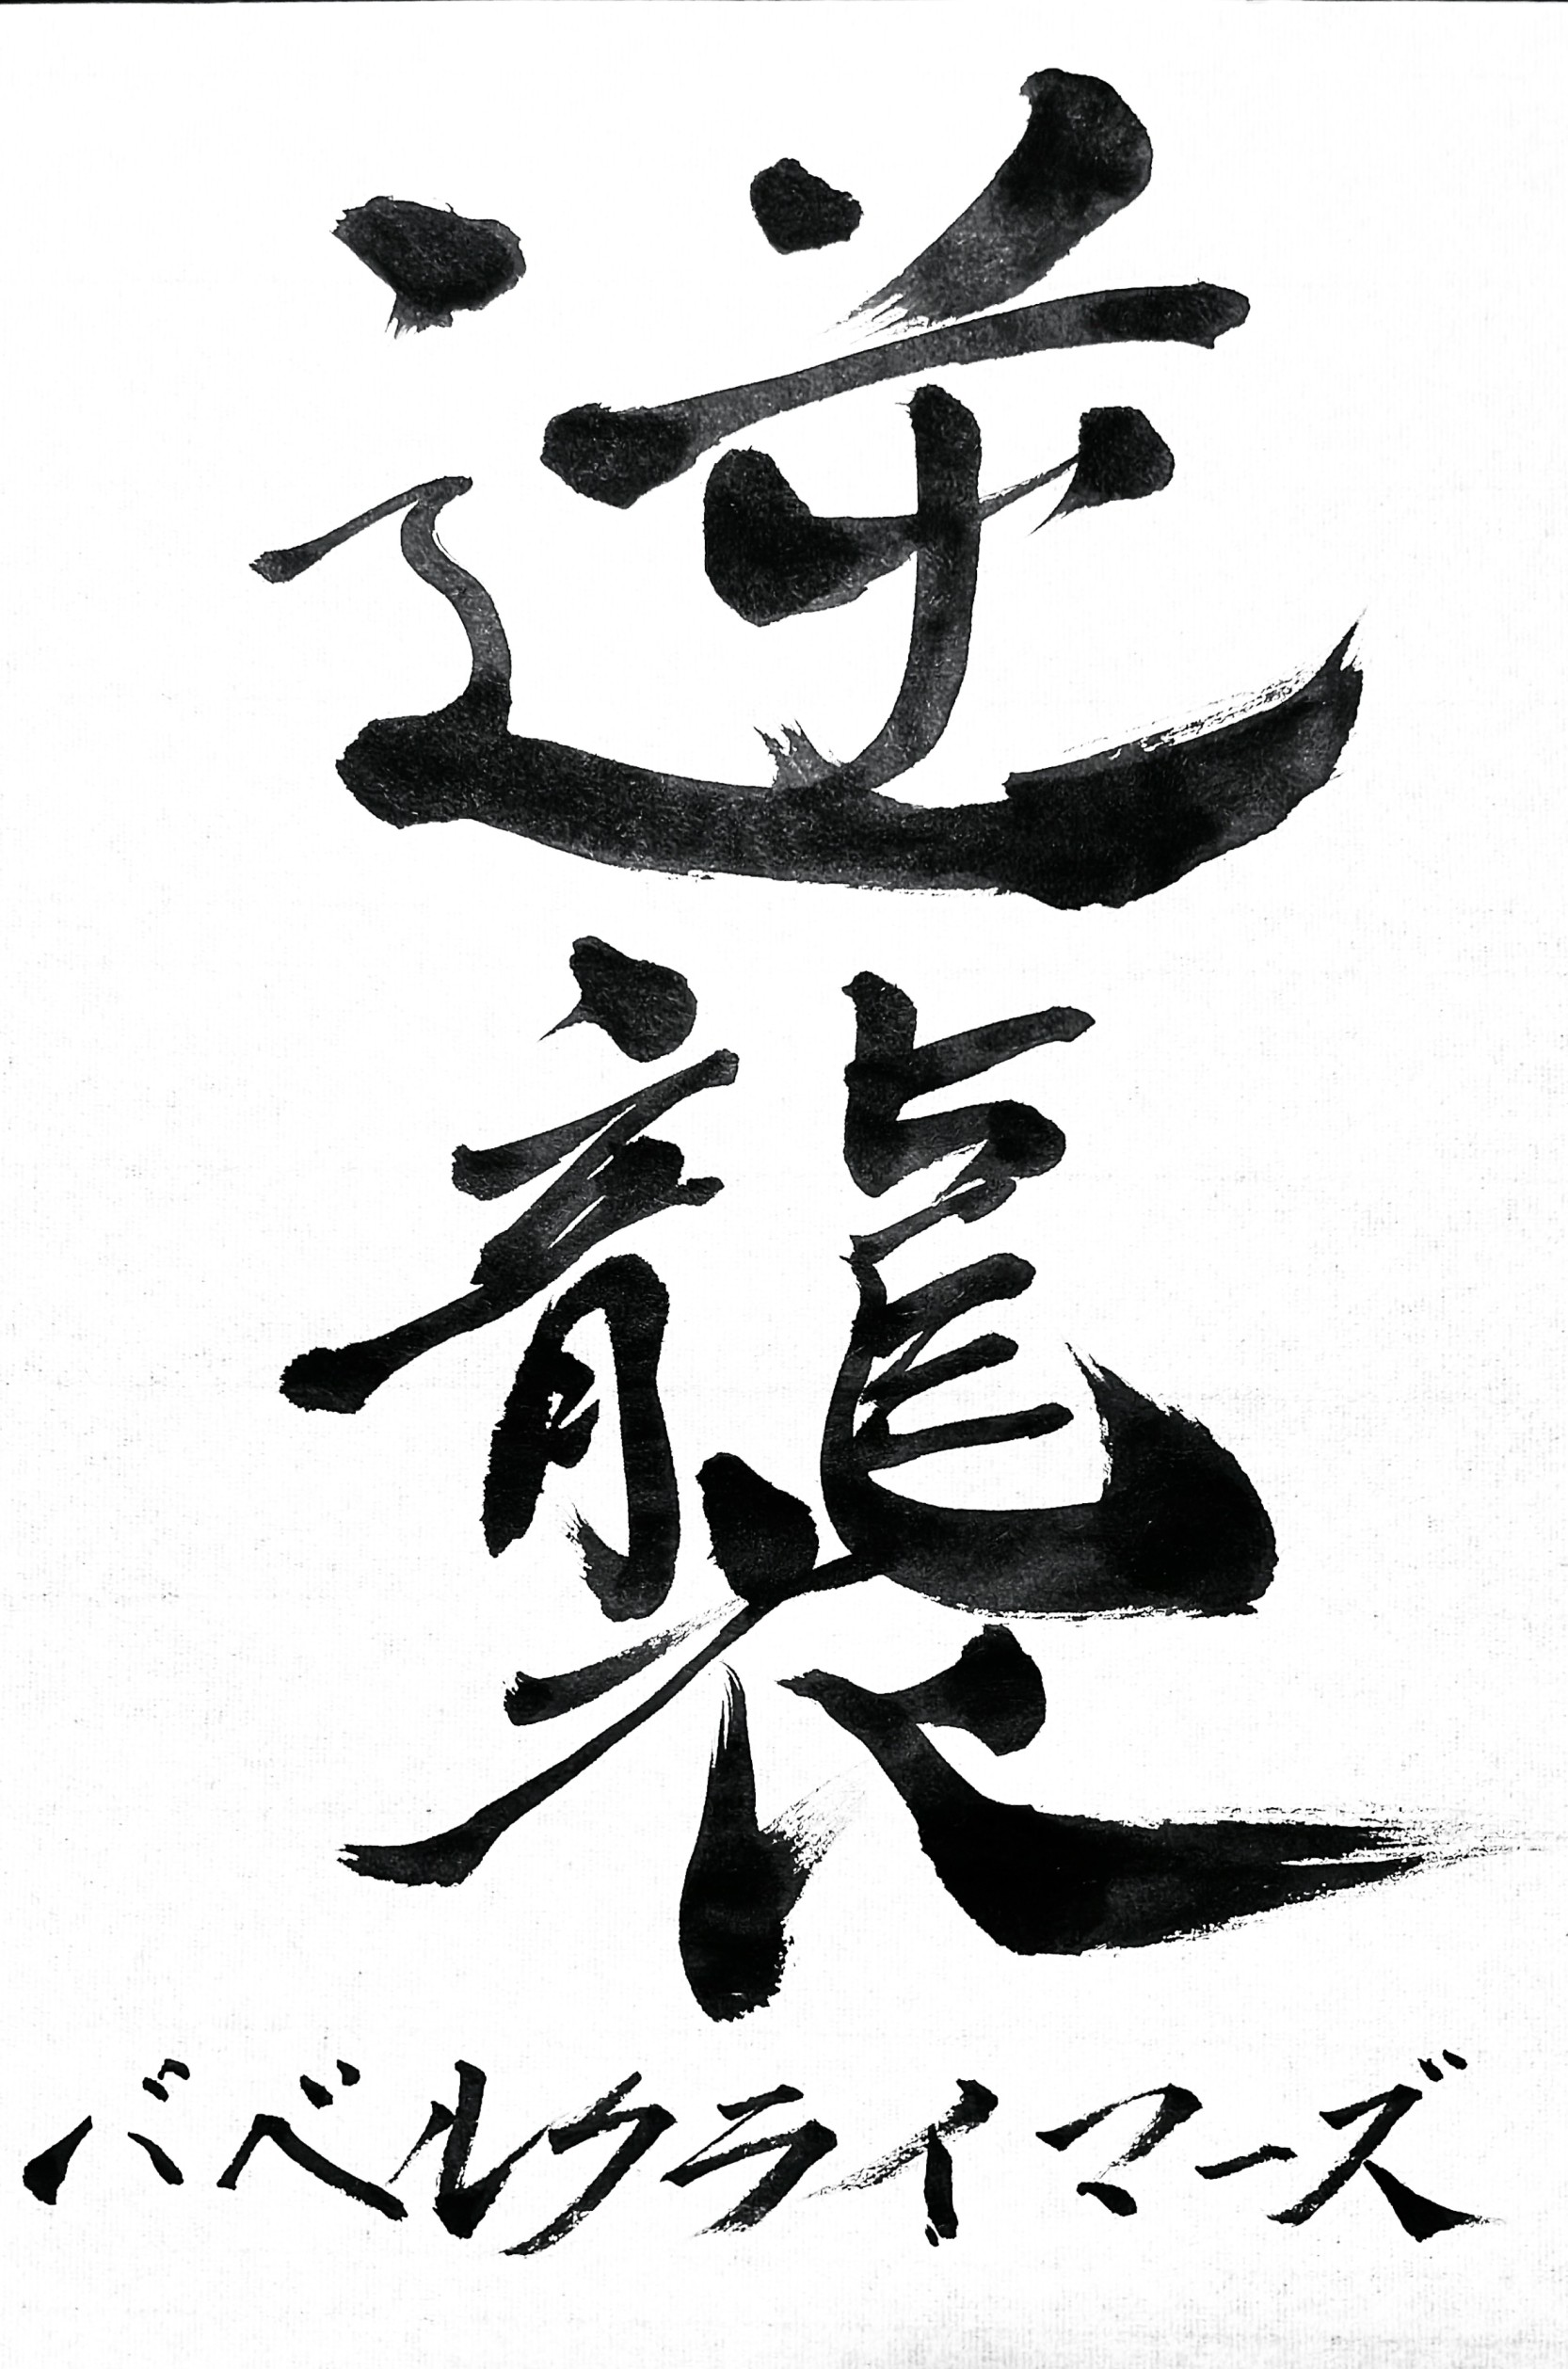 逆
襲
バベルクライマーズ